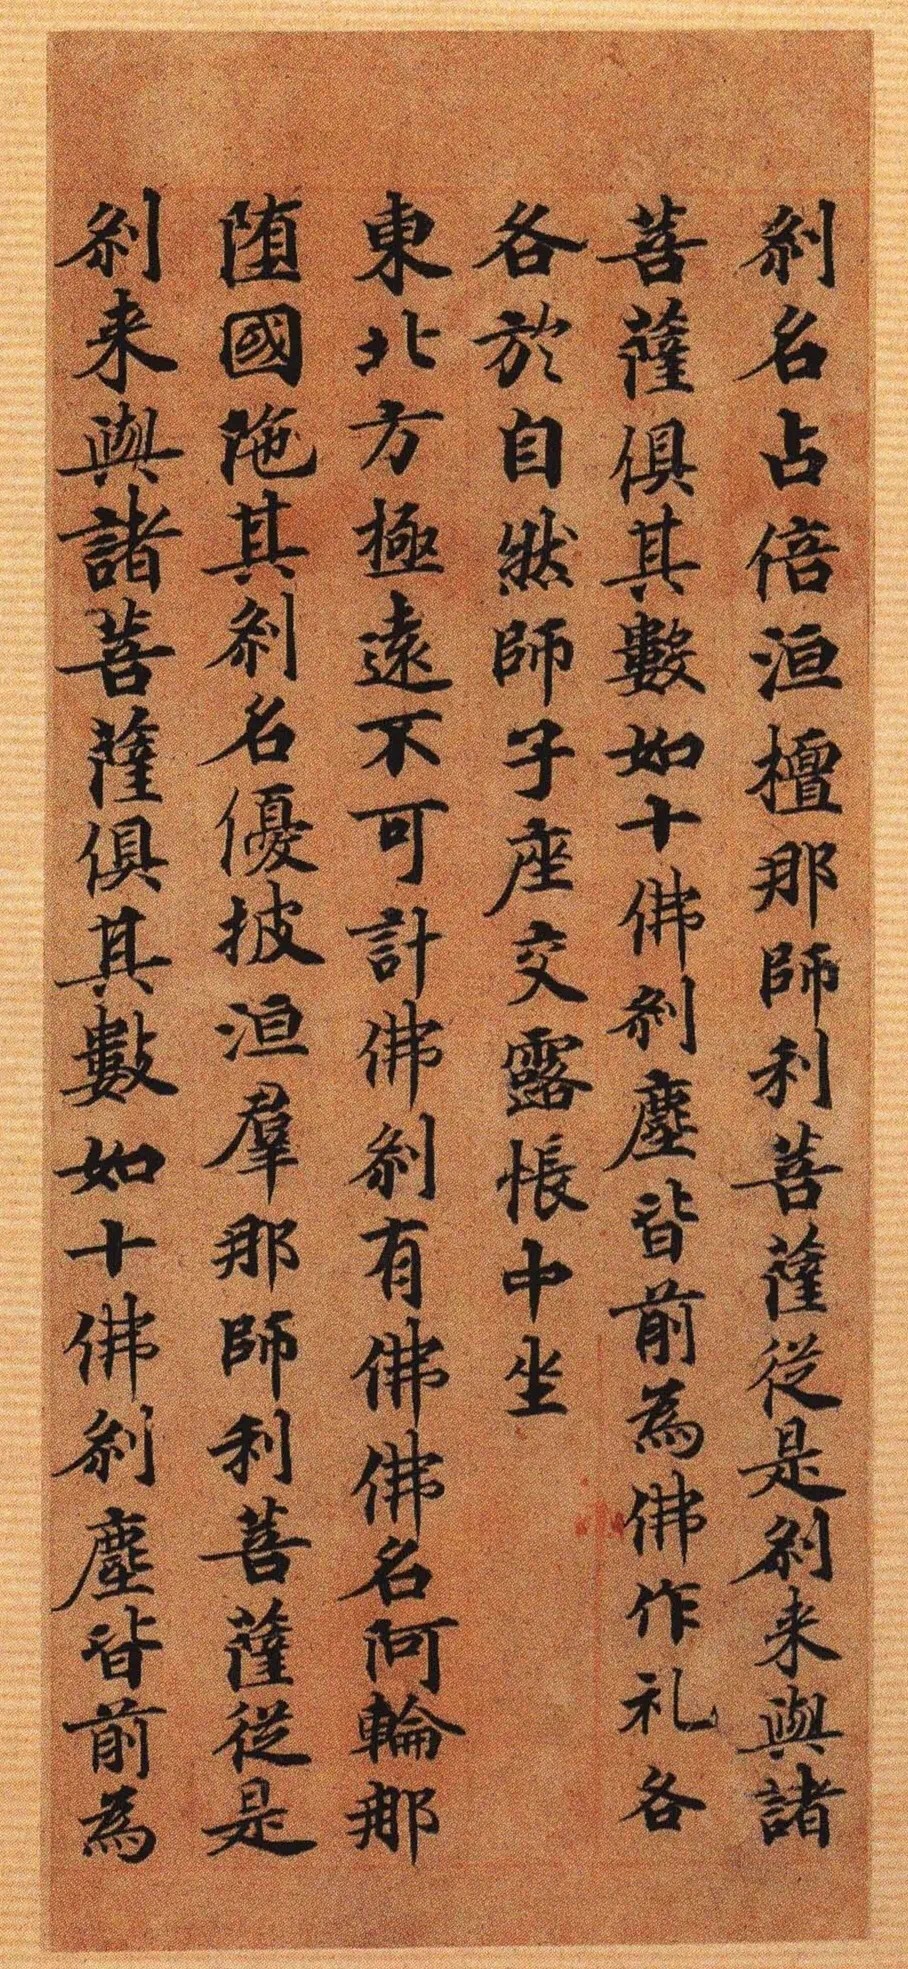 刹名占倍洹檀那師利菩薩從是刹来與諸
菩薩俱其數如十佛刹塵皆前為佛作礼各
各於自然師子座交露帳中坐
東北方極遠不可計佛刹有佛佛名阿輪那
堕國陁其刹名優披洹羣那師利菩薩從是
刹来與諸菩薩俱其數如十佛刹塵皆前為